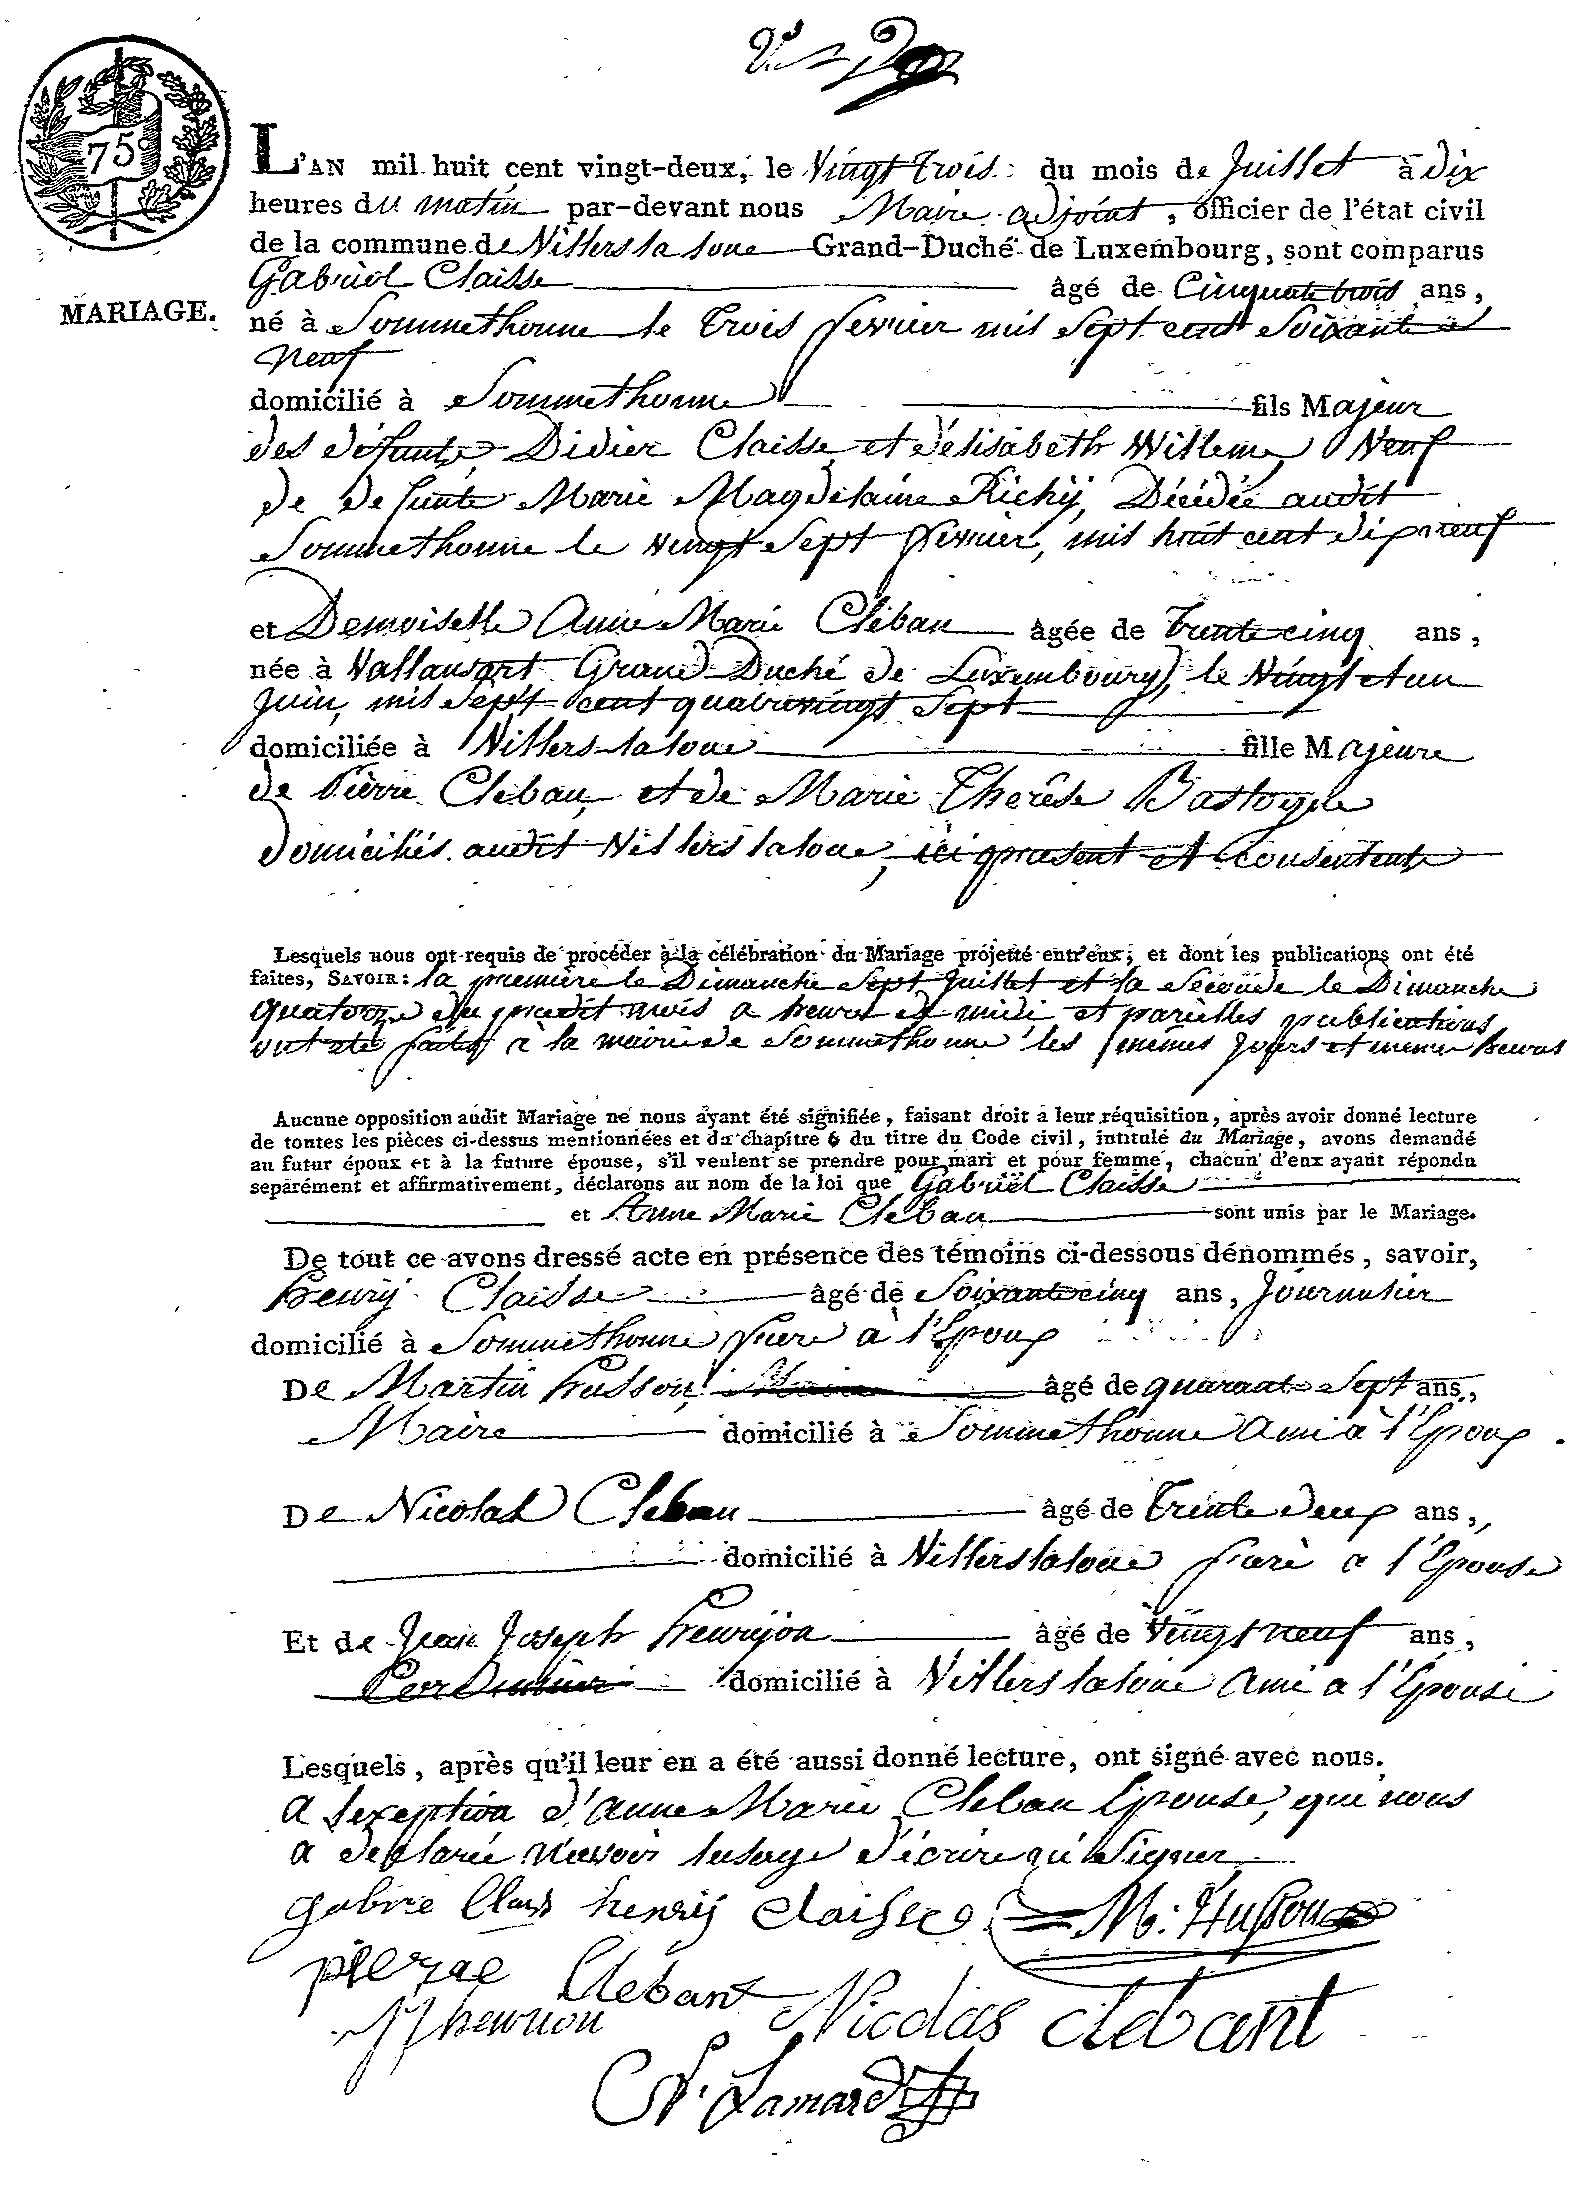 75
MARIAGE.
L'AN mil huit cent vingt-deux, le Vingt trois du mois de Juillet à dix
heures du matin par-devant nous Maire adjoint, officier de l'état civil
de la commune de Villers la loue Grand-Duché de Luxembourg, sont comparus
Gabriël Claisse âgé de Cinquate trois ans,
né à Sommethonne le trois fevrier mil Sept cent Soixante et
neuf
domicilié à Sommethonne fils Majeur
des défunts Didier Claisse et d'élisabeth Willeme, Veuf
de defunte Marie Magdelaine Richÿ, Décédée audit
Sommethonne le vingt Sept fevrier, mil huit cent dix neuf
et Demoiselle Anne Marie Cleban âgée de Trente cinq ans,
née à Vallansart Grand Duché de Luxembourg, le Vingt et un
Juin, mil Sept cent quatrevingt Sept
domiciliée à Villers-la loue fille Majeure
de Pierre Cleban, et de Marie Therêse Bastogne
domiciliés audit Villers la loue, ici present et Consentents
Lesquels nous ont requis de procéder à la célébration du Mariage projetté entr'eux; et dont les publications ont été
faites, SAVOIR: la premiere le Dimanche Sept Juillet et la Seconde le Dimanche
quatorze du predit mois a heure de midi et pareilles publications
ont été faites à la mairie de Sommethonne les mêmes Jours et meme heures
Aucune opposition audit Mariage ne nous ayant été signifiée, faisant droit à leur réquisition, après avoir donné lecture
de toutes les pièces ci-dessus mentionnées et du chapitre 6 du titre du Code civil, intitulé du Mariage, avons demandé
au futur époux et à la future épouse, s'il veulent se prendre pour mari et pour femme, chacun d'eux ayant répondu
séparément et affirmativement, déclarons au nom de la loi que Gabriël Claisse
et Anne Marie Cleban sont unis par le Mariage.
De tout ce avons dressé acte en présence des témoins ci-dessous dénommés, savoir,
henrÿ Claisse âgé de Soixante cinq ans, Journalier
domicilié à Sommethonne frere à l'Epoux
De Martin husson, âgé de quarante Sept ans,
Maire domicilié à Sommethonne Ami à l'Epoux.
De Nicolas Cleban âgé de Trente deux ans,
domicilié à Villers la loue frere a l'Epouse
Et de Jean Joseph henrijon âgé de Vingt neuf ans,
Cordonnier domicilié à Villers la loue Ami a l'Epouse
Lesquels, après qu'il leur en a été aussi donné lecture, ont signé avec nous.
A l'exeption d'anne Marie Cleban Epouse, qui nous
a declarée n'avoir lusage d'écrire ni Signer
gabrie Clais henrÿ claisse M: Husson
pierre Clebant Nicolas clebant
JJ henrion
Lamard